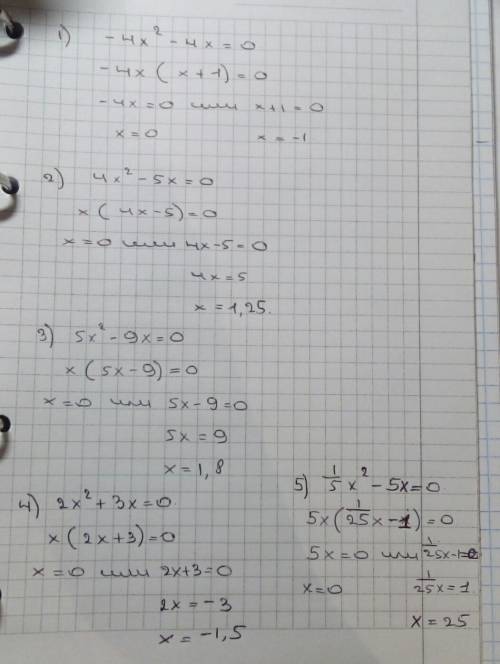 1) -4x² - 4x = 0
-4x (x+1) = 0
-4x = 0 или x+1 = 0
x = 0 x = -1
2) 4x² - 5x = 0
x (4x-5) = 0
x = 0 или 4x-5 = 0
4x = 5
x = 1,25.
3) 5x² - 9x = 0
x (5x-9) = 0
x = 0 или 5x-9 = 0
5x = 9
x = 1,8
4) 2x² + 3x = 0.
x (2x+3) = 0
x = 0 или 2x+3 = 0
2x = -3
x = -1,5
5) 1/5 x² - 5x = 0.
5x (1/25 x - 1) = 0
5x = 0 или 1/25 x - 1 = 0
x = 0 1/25 x = 1.
x = 25